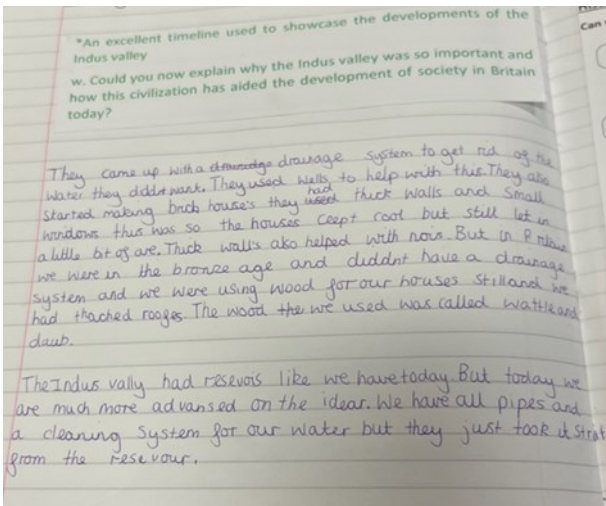 *An excellent timeline used to showcase the developments of the
Indus valley
w. Could you now explain why the Indus valley was so important and
how this civilization has aided the development of society in Britain
today?
Can
They came up with a drainage system to get rid of the
water they diddnt want. They used wells to help with this. They also
started making brick house's they had thick walls and small
windows this was so the houses ceept cool but still let in
a little bit of are. Thick wall's also helped with nois. But in
we were in the bronze age and diddnt have a drainage
system and we were using wood for our houses still and we
had thached rooges. The wood the we used was called wattle and
daub.
The Indus vally had resevois like we have today. But today we
are much more advansed on the idear. We have all pipes and
a cleaning system for our water but they just took it strat
from the resevour.